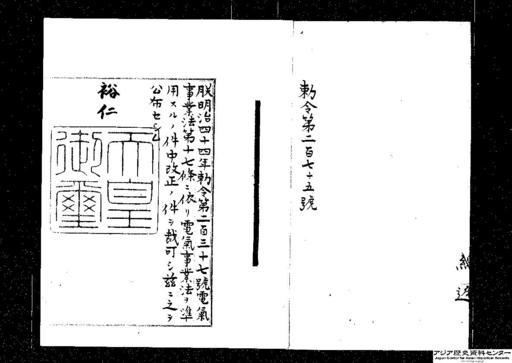 勅令第二百七十五號
朕明治四十四年勅令第二百三十七號電氣
事業法第十七條ニ依リ電氣事業法ヲ準
用スルノ件中改正ノ件ヲ裁可シ茲ニ之ヲ
公布セシム
裕仁
天皇
御璽
アジア歴史資料センター
Japan Center for Asian Historical Records